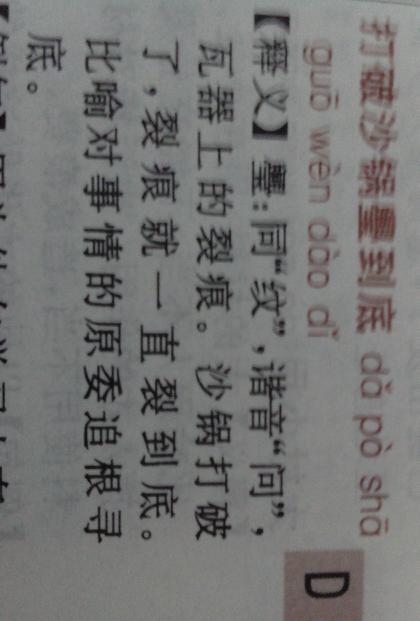 打破沙锅璺到底 dǎ pò shā
guō wèn dào dǐ
【释义】璺:同“纹”,谐音“问”,
瓦器上的裂痕。沙锅打破
了,裂痕就一直裂到底。
比喻对事情的原委追根寻
底。
D